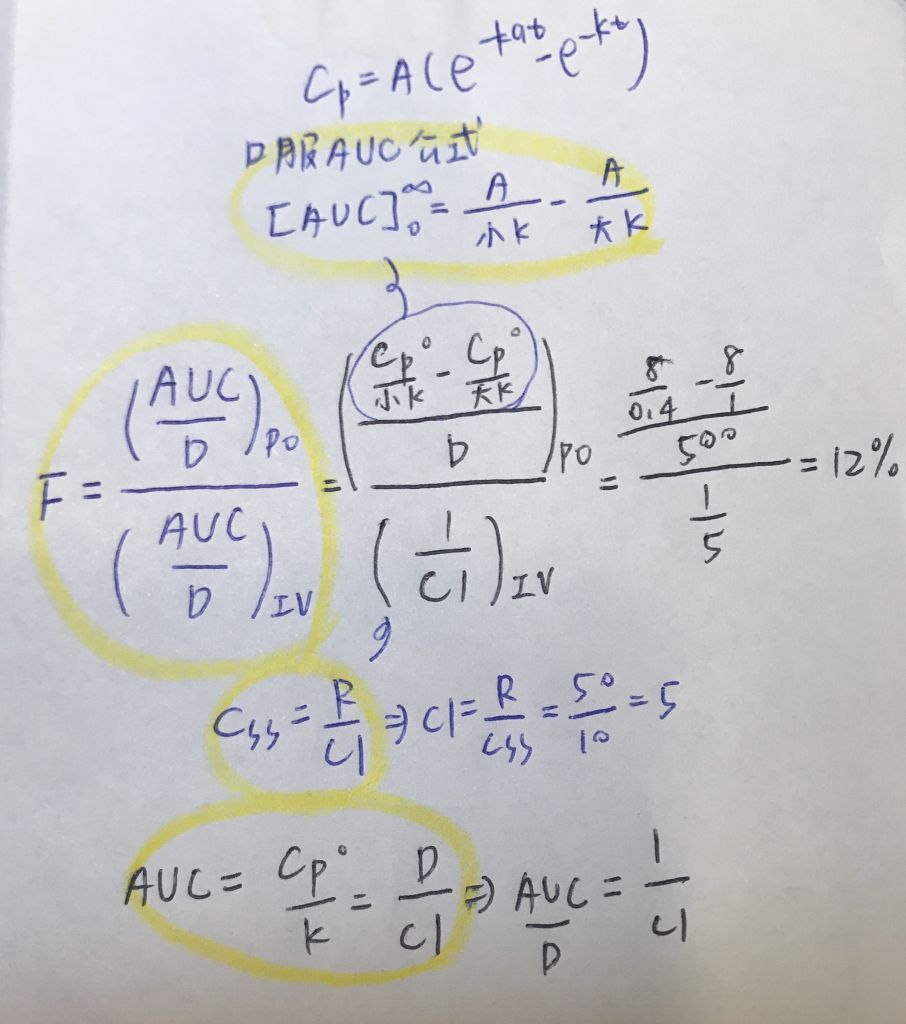 Cp = A(e^-kat - e^-kt)
口服AUC公式
[AUC]₀^∞ = A/小k - A/大k
F = (AUC/D)PO / (AUC/D)IV = ((Cp°/小k - Cp°/大k)/D)PO / (1/Cl)IV = ((8/0.4 - 8/1)/500) / (1/5) = 12%
Css = R/Cl ⇒ Cl = R/Css = 50/10 = 5
AUC = Cp°/k = D/Cl ⇒ AUC/D = 1/Cl